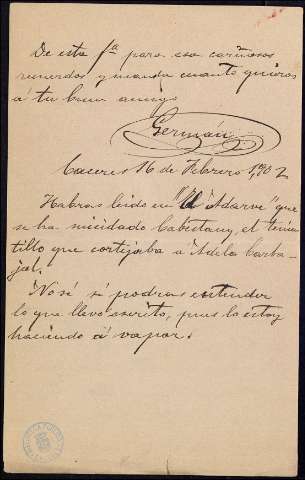 De esta fª para esa cariñosos
recuerdos y manda cuanto quieras
á tu buen amigo
Germán
Caceres 16 de Febrero 1,902
Habras leido en "El Adarve" que
se ha suicidado Cabestany, el tenien
tillo que cortejaba a Adela Carba
jal.
No sé si podras entender
lo que llevo escrito, pues lo estoy
haciendo á vapor.